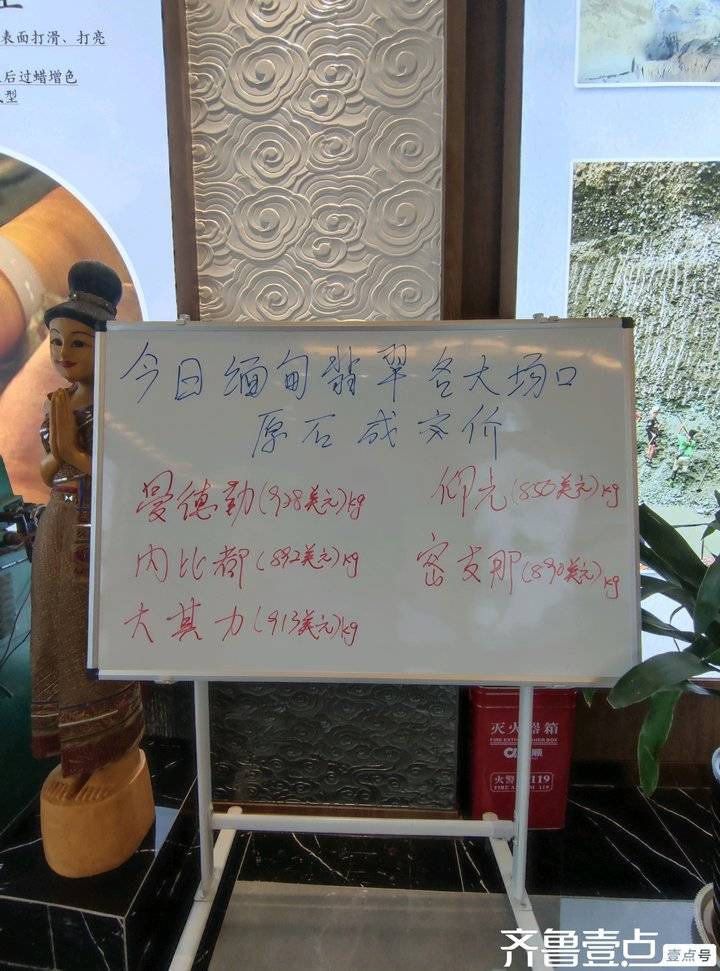 表面打滑、打亮
后过蜡增色
型
今日缅甸翡翠各大场口
原石成交价
曼德勒(928美元)kg
仰光(850美元)kg
内比都(892美元)kg
密支那(890美元)kg
大其力(913美元)kg
灭火器箱
FIRE EXTINGUISHER BOX
火警119
FIRE ALARM 119
齐鲁壹点
壹点号